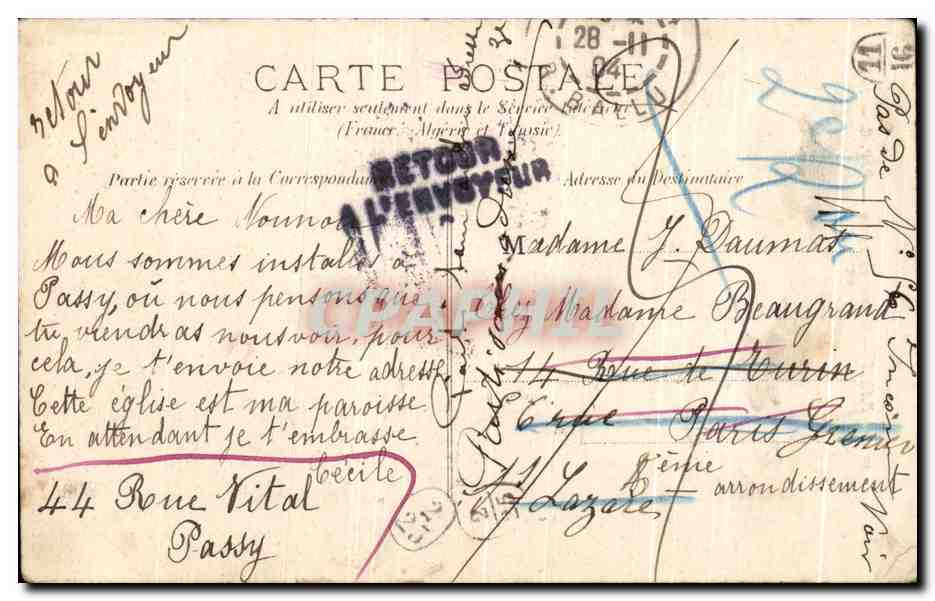 retour
a l'envoyeur
28 - 11
04
CARTE POSTALE
A utiliser seulement dans le Service Intérieur
(France, Algérie et Tunisie).
RETOUR
A L'ENVOYEUR
Partie réservée à la Correspondance
Ma chère Nounou
Nous sommes installés à
Passy, où nous pensons que
tu viendras nous voir, pour
cela, je t'envoie notre adresse
Cette église est ma paroisse
En attendant je t'embrasse
Cécile
44 Rue Vital
Passy
Adresse du Destinataire
Madame J. Daumas
Chez Madame Beaugrand
14 Rue de Turin
Paris
8ème
arrondissement
11
16
Pas de
Voir
CPAPHIL